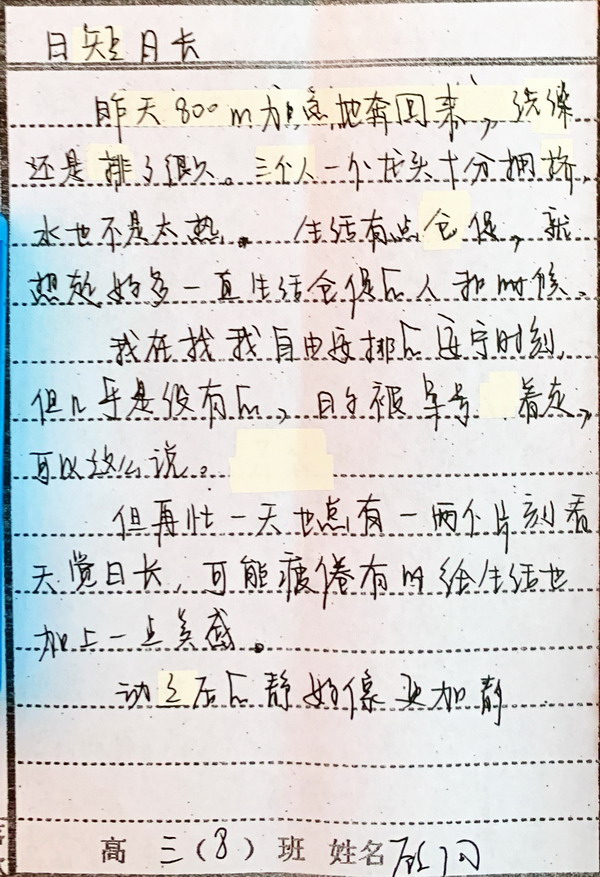 日短日长
昨天800m加急地奔回来，洗澡
还是排了很久。三个人一个龙头十分拥挤，
水也不是太热。生活有点仓促，就
想起好多一直生活仓促的人和时候。
我在找我自由安排的安宁时刻，
但几乎是没有的，日子被牵着走，
可以这么说。
但再忙一天也总有一两个片刻看
天觉日长，可能疲倦有时给生活也
加上一点美感。
动之后的静好像更加静
高三(8)班 姓名